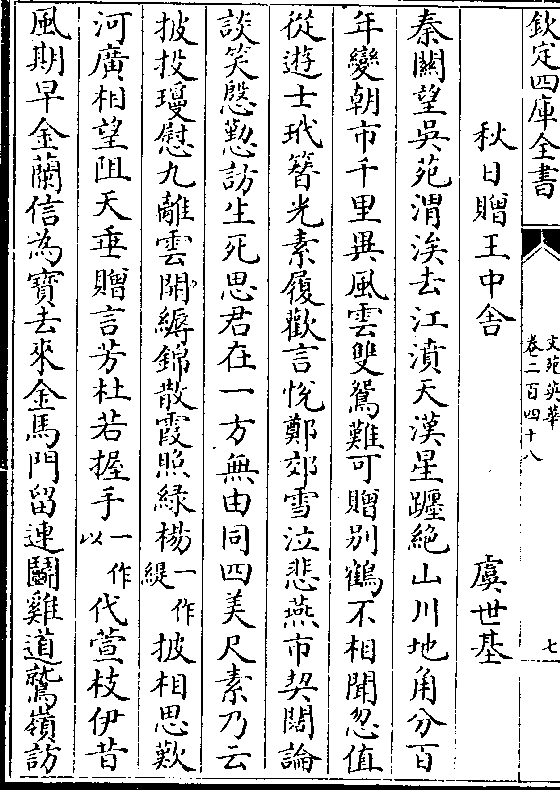 欽定四庫全書
文苑英華
卷二百四十八
七
秋日贈王中舎 虞世基
秦關望吳苑渭涘去江濆天漢星躔絶山川地角分百
年變朝市千里異風雲雙鴛難可贈别鶴不相聞忽值
從遊士玳簪光素履歡言悅鄭郊雪泣悲燕市契闊論
談笑慇懃訪生死思君在一方無由同四美尺素乃云
披投瓊慰九離雲開縟錦散霞照緑楊一作緹披相思歎
河廣相望阻天垂贈言芳杜若握手一作以代萱枝伊昔
風期早金蘭信為寳去來金馬門留連鬭雞道鷲嶺訪